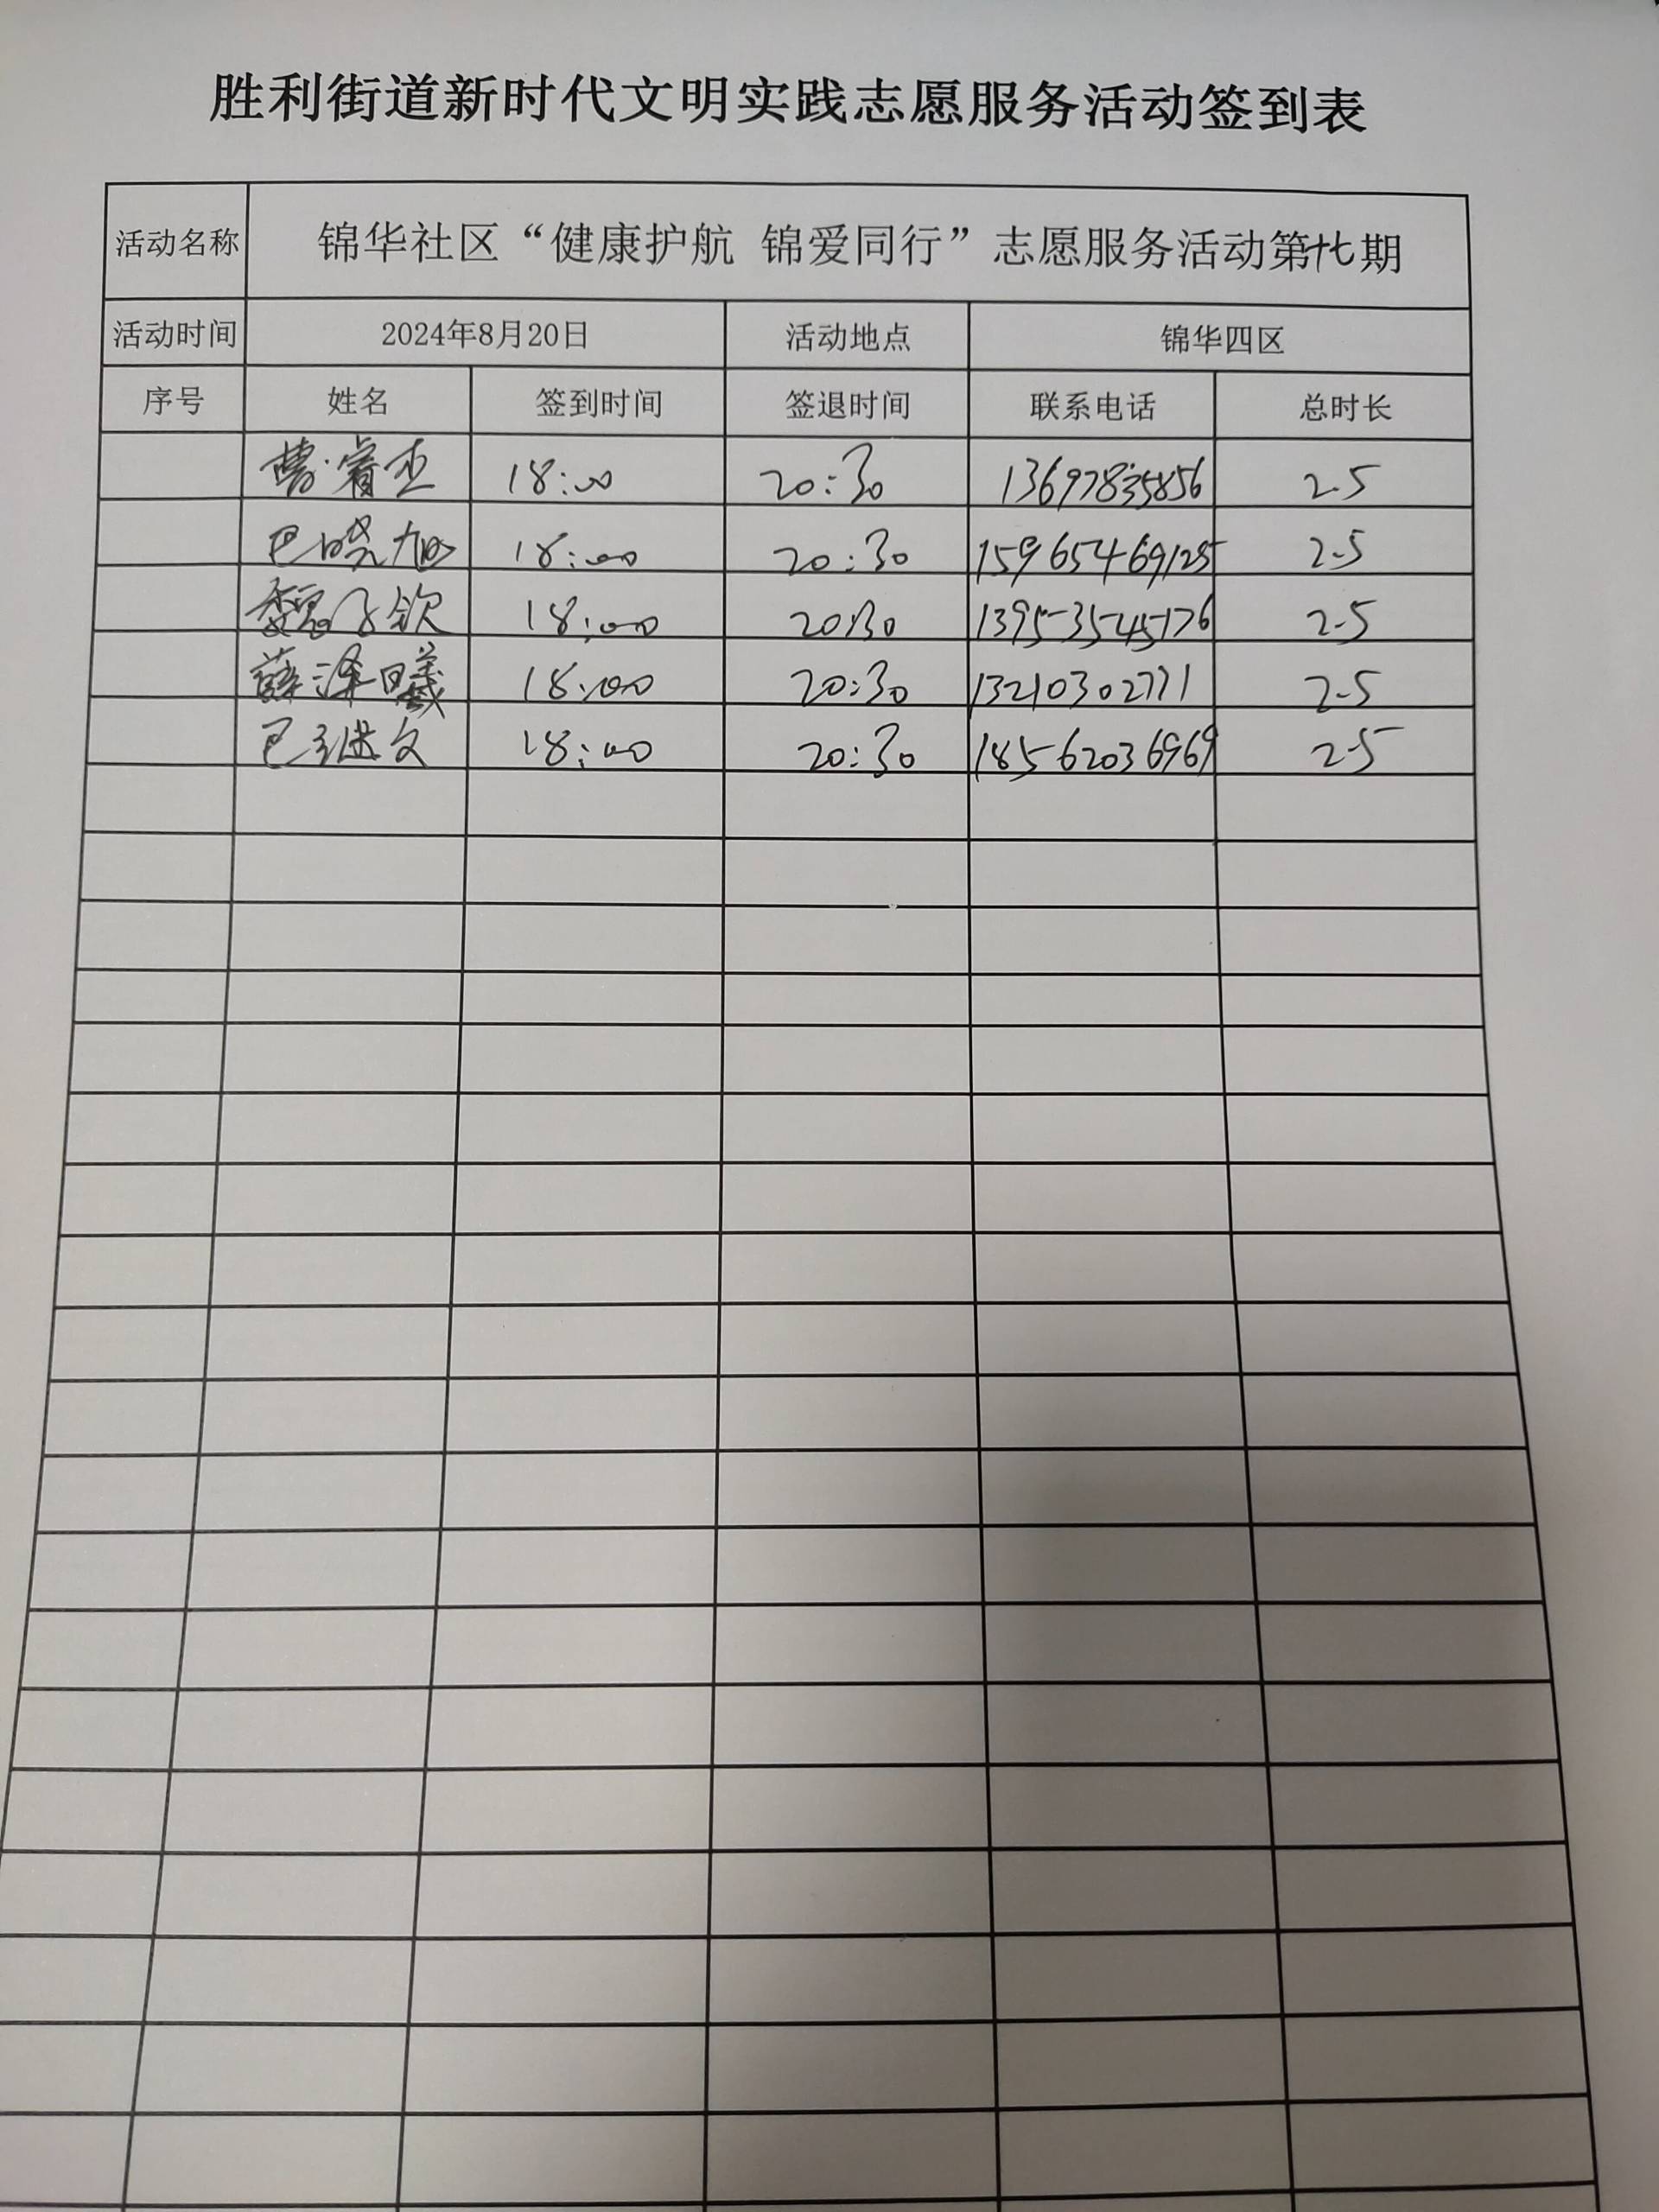 胜利街道新时代文明实践志愿服务活动签到表
活动名称 锦华社区“健康护航 锦爱同行”志愿服务活动第十七期
活动时间 2024年8月20日 活动地点 锦华四区
序号 姓名 签到时间 签退时间 联系电话 总时长
曹睿杰 18:00 20:30 13697835856 2.5
巴晓旭 18:00 20:30 15965469125 2.5
魏子钦 18:00 20:30 13953545176 2.5
薛泽曦 18:00 20:30 13210302771 2.5
18:00 20:30 18562036969 2.5